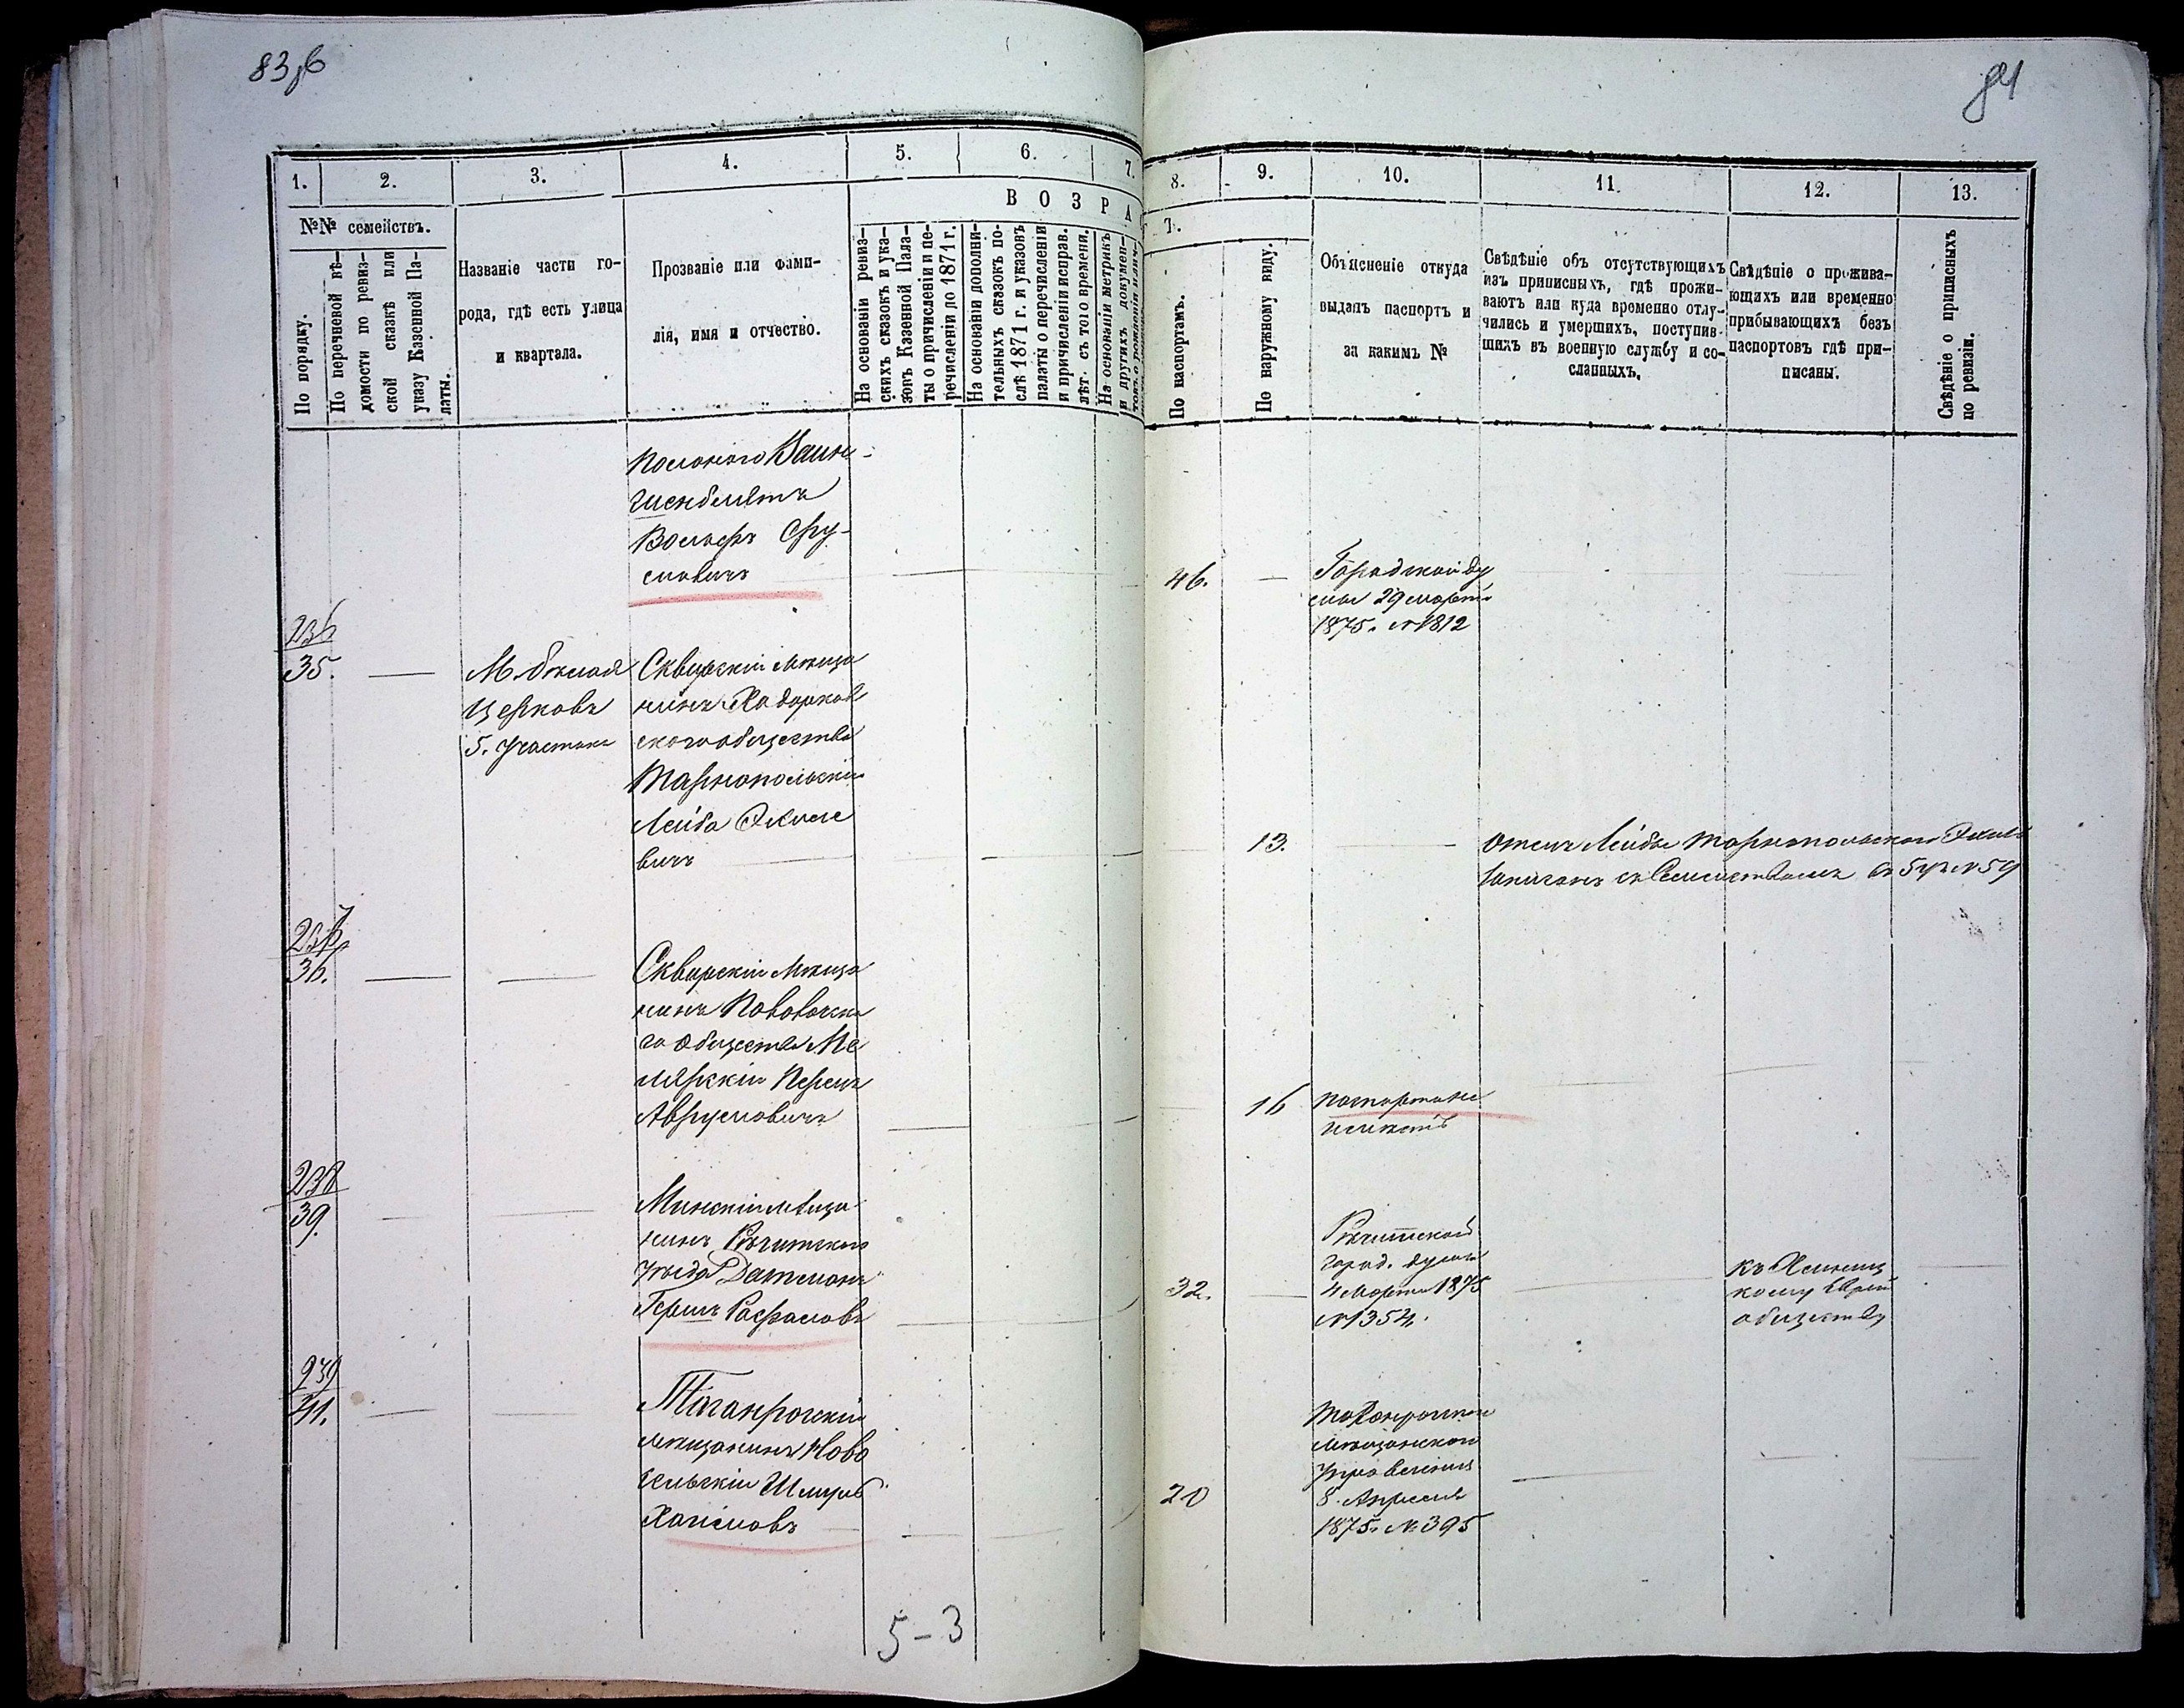 83 об
84
1. 2. 3. 4. 5. 6. 7.
№№ семействъ.
В О З Р А
По порядку.
По перечневой вѣ-
домости по ревиз-
ской сказкѣ или
указу Казенной Па-
латы.
Названіе части го-
рода, гдѣ есть улица
и квартала.
Прозваніе или фами-
лія, имя и отчество.
На основаніи ревиз-
скихъ сказокъ и ука-
зовъ Казенной Пала-
ты о причисленіи и пе-
речисленіи до 1871 г.
На основаніи дополни-
тельныхъ сказокъ по-
слѣ 1871 г. и указовъ
палаты о перечисленіи
и причисленіи исправ.
лѣт. съ того времени.
На основаніи метрикъ
и другихъ докумен-
8. 9. 10. 11. 12. 13.
Т.
По паспортамъ.
По наружному виду.
Объясненіе откуда
выданъ паспортъ и
за какимъ №
Свѣдѣніе объ отсутствующихъ
изъ приписныхъ, гдѣ прожи-
ваютъ или куда временно отлу-
чились и умершихъ, поступив-
шихъ въ военную службу и со-
сланныхъ.
Свѣдѣніе о прожива-
ющихъ или временно
прибывающихъ безъ
паспортовъ гдѣ при-
писаны.
Свѣдѣніе о приписныхъ
по ревизіи.
Вольфъ Сру-
левичъ
46.
Городской ду
мы 29 марта
1875. №1812
236
35.
М. бѣлая
Церковь
5. участка
Сквирскій мѣща
нинъ Ходорков
скаго общества
Тарнопольскій
Лейба Экиле
вичъ
13.
Отецъ Лейбы Тарнопольскаго
Записанъ съ Семействомъ
237
36.
Сквирскій мѣща
нинъ Паволочска
го общества Ме
лярскій Перецъ
Аврумовичъ
16
паспорта не
имѣетъ
238
39.
Минскій мѣща
нинъ Рѣчитскаго
уѣзда Датманъ
Гершъ Рафаловъ
32.
Рѣчитской
город. думы
4 Марта 1875
№1354.
общества
239
41.
Таганрогскій
мѣщанинъ Ново
сельскій Шмуль
Хаимовъ
20
Таганрогскаго
мѣщанскаго
управленія
8. Апрѣля
1875. № 395
5-3